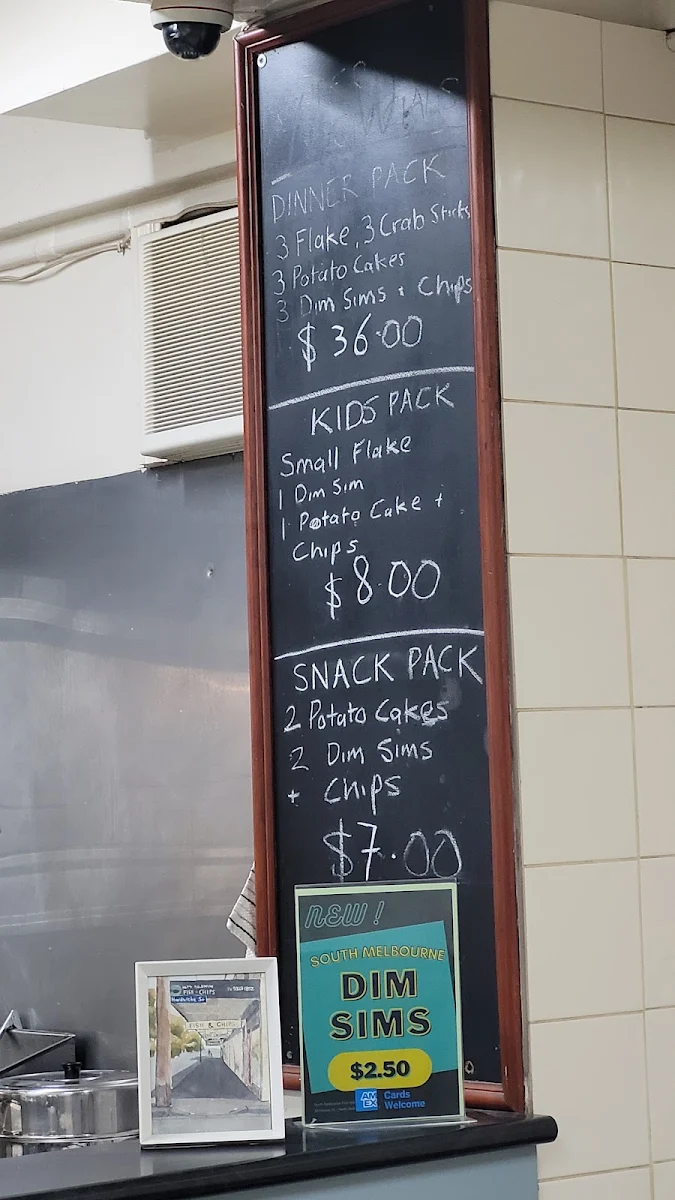 DINNER PACK
3 Flake, 3 Crab Sticks
3 Potato Cakes
3 Dim Sims + Chips
$36.00
KIDS PACK
Small Flake
1 Dim Sim
1 Potato Cake +
Chips
$8.00
SNACK PACK
2 Potato Cakes
2 Dim Sims
+ Chips
$7.00
NEW!
SOUTH MELBOURNE
DIM
SIMS
$2.50
AM
EX
Cards
Welcome
FISH & CHIPS